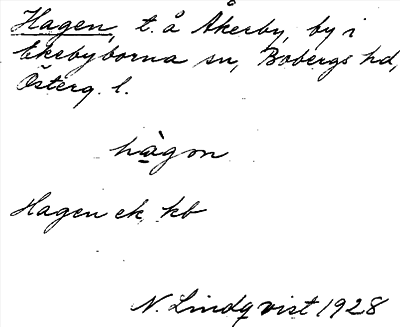 Hagen, t. å Åkerby, by i
Ekebyborna sn, Bobergs hd,
Österg. l.
hàgon
Hagen ek. kb
N. Lindqvist 1928